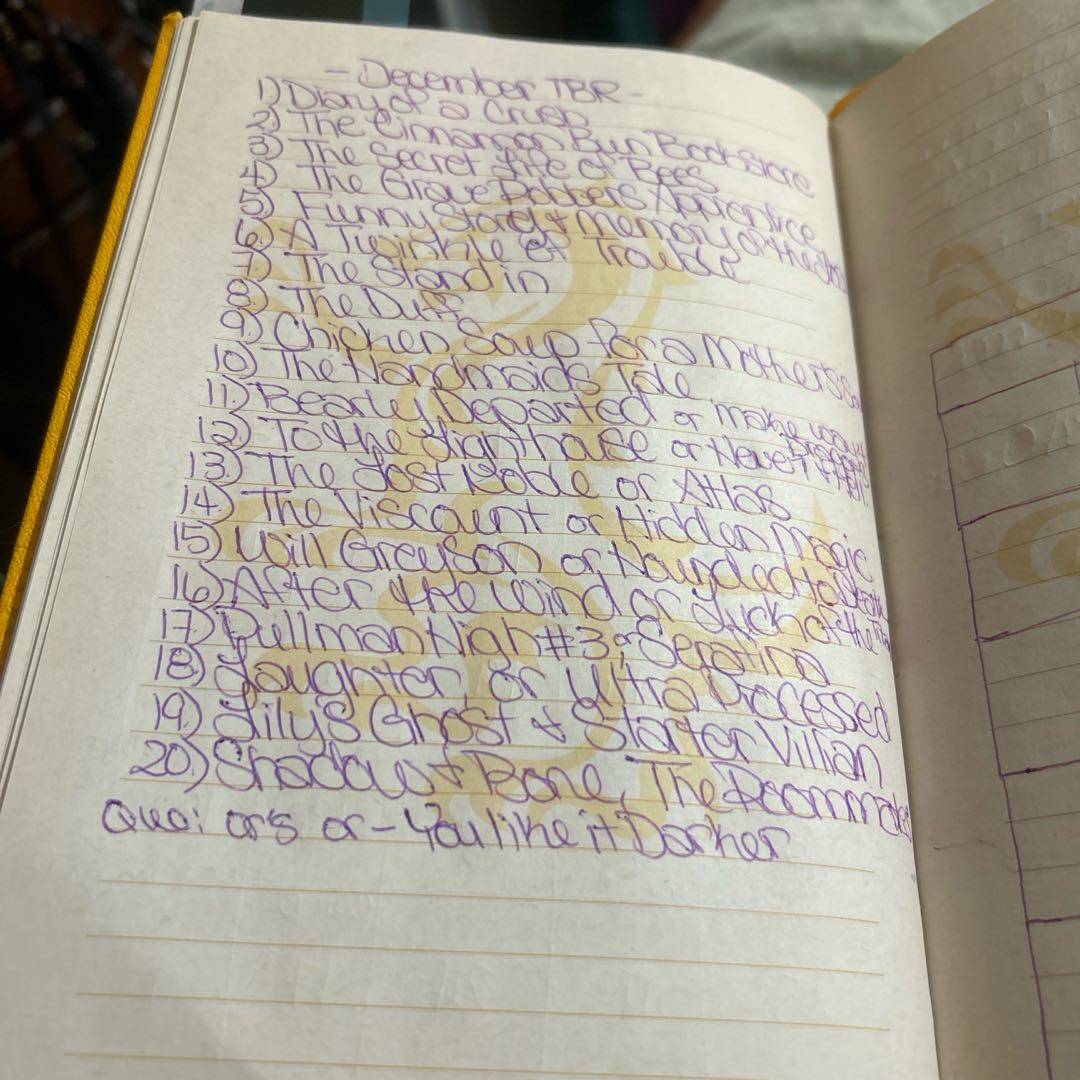 - December TBR -
1) Diary of a Crush
2) The Cinnamon Bun Book Store
3) The Secret Life of Bees
4) The Grave Robbers Apprentice
5) Funny Story & Memory of the
6) A Twinkle of Trouble
7) The Stand in
8) The Duff
9) Chicken Soup for a Mothers So
10) The Handmaids Tale
11) Bearly Departed or make
12) To the Lighthouse or Never
13) The Lost Noble or Atlas
14) The Viscount or Hidden Magic
15) Will Greyson or Hounded to Death
16) After the Wind or Luck of the
17) Pullman High #3: Serafina
18) Laughter or Ultra Processed
19) Lilys Ghost & Starter Villian
20) Shadow & Bone, The Roommates
or - You like it Darker